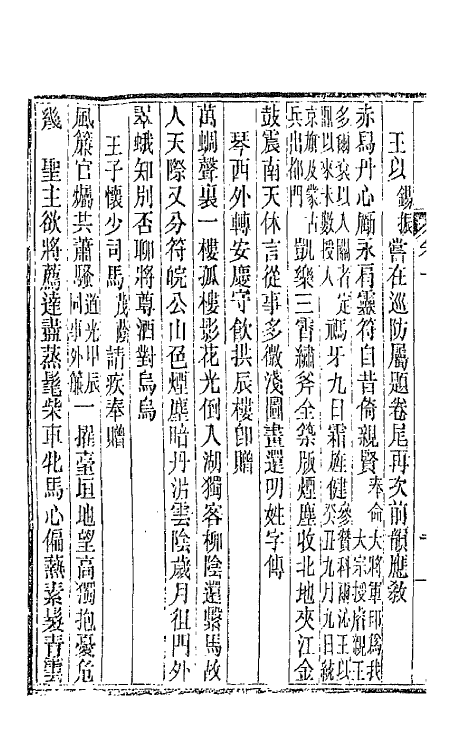 王以錫振嘗在巡防屬題卷尾再次前韻應敎
赤舄丹心勵永肩靈符自昔倚親賢奉命大將軍印爲我太宗授睿親王
多爾袞以入關者定鼎以來未數授人禡牙九日霜旌健參贊科爾沁王以癸丑九月九日統
京旗及蒙古兵出都門凱樂三霄繡斧全築版煙塵收北地夾江金
鼓震南天休言從事多微淺圖畫還明姓字傳
琴西外轉安慶守飲拱辰樓卽贈
萬蜩聲裏一樓孤樓影花光倒入湖獨客柳陰還繫馬故
人天際又分符皖公山色煙塵暗丹浩雲陰歲月徂門外
翠蛾知別否聊將尊酒對烏烏
王子懷少司馬茂蔭請疾奉贈
風簾官燭共蕭騷道光甲辰同事外簾一擢臺垣地望高獨抱憂危
幾　聖主欲將薦達盡蒸髦柴車牝馬心偏熱素髮靑雲